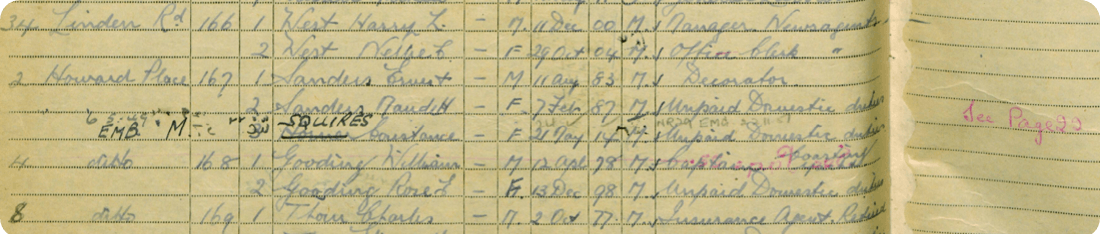 34 Linden Rd 166 1 West Harry L. - M. 11 Dec 00 M. Manager Newsagents
2 West Nellie E. - F 29 Oct 04 M. Office Clerk "
2 Howard Place 167 1 Sanders Ernest - M 11 Aug 83 M. Decorator
2 Sanders Maud H - F. 7 Feb 87 M Unpaid Domestic duties
See Page 20
EMB. M. SQUIRES Constance - F 21 14 Unpaid Domestic duties
4 ditto 168 1 Gooding William - M 12 Apl 98 M.
2 Gooding Rose L - F. 13 Dec 98 M. Unpaid Domestic duties
8 ditto 169 1 Charles - M. 2 Oct 77 M. Insurance Agent. Retired